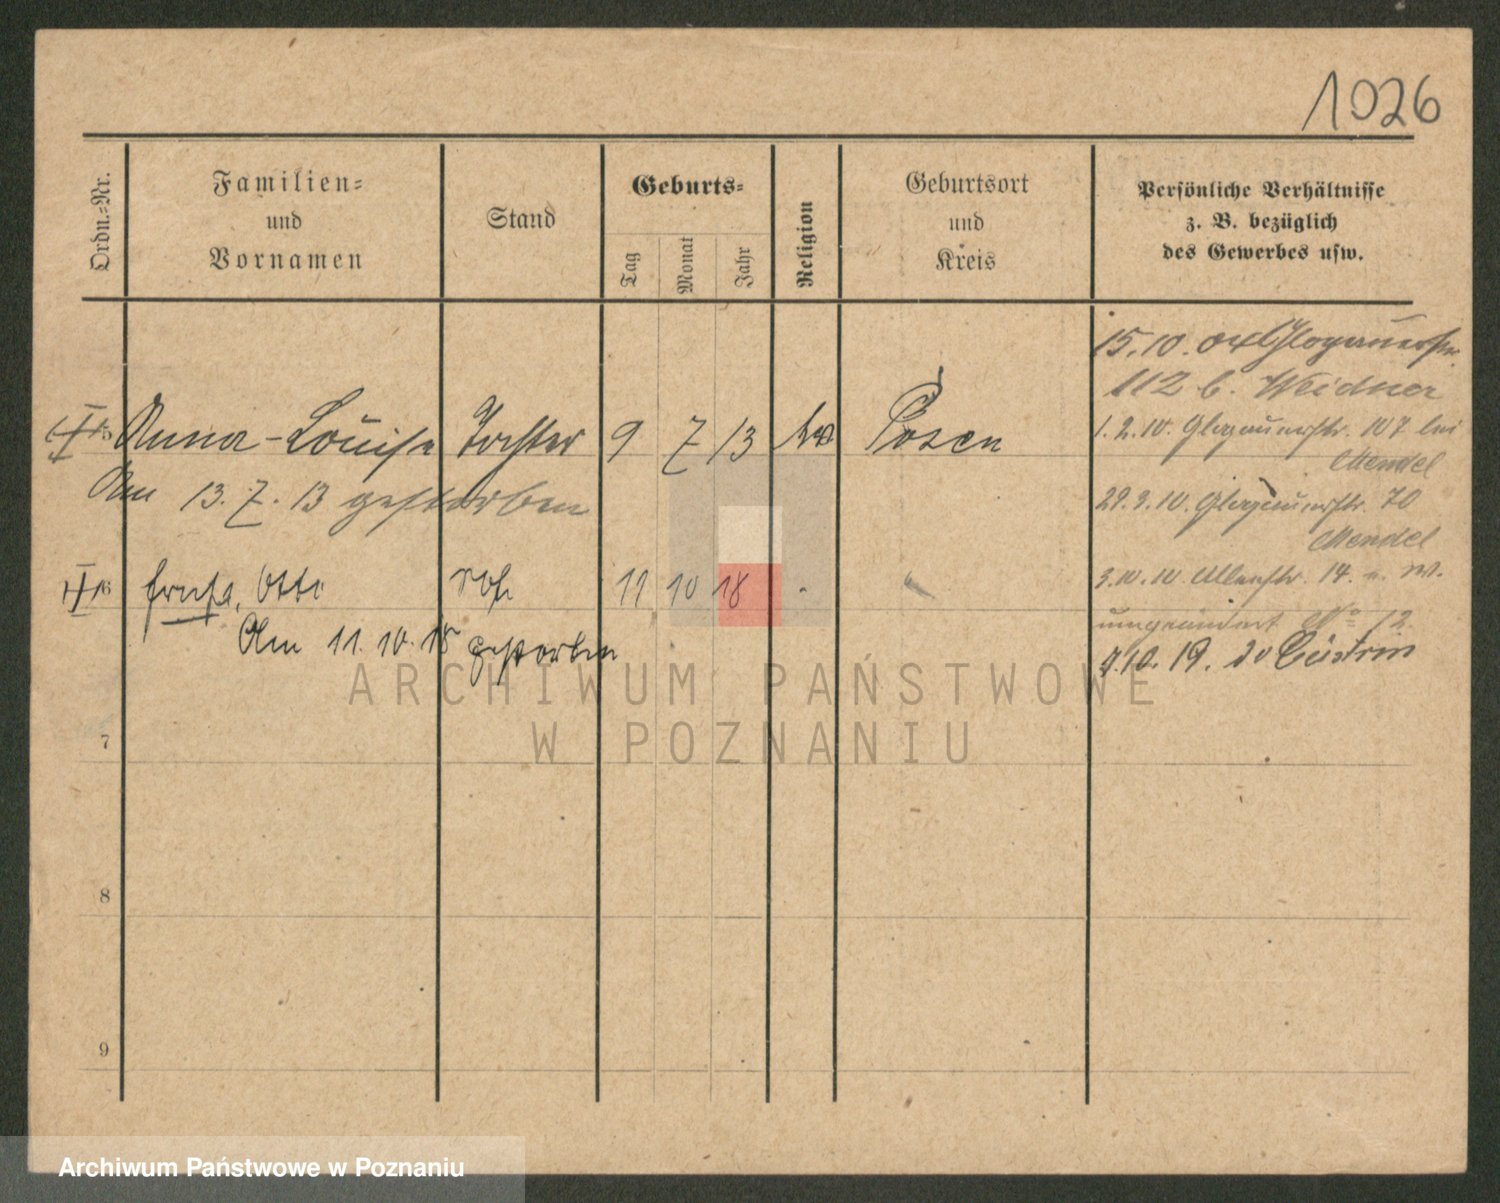 1026
Ordn.-Nr.
Familien-
und
Vornamen
Stand
Geburts-
Tag
Monat
Jahr
Religion
Geburtsort
und
Kreis
Persönliche Verhältnisse
z. B. bezüglich
des Gewerbes usw.
15.10.04 Glogauerstr.
112 b. Weidner
Anna-Louise Tochter 9 7 13 Posen
1.2.10. Glogauerstr. 107 bei
Mendel
Am 13.7.13 gestorben
29.3.10. Glogauerstr. 70
Mendel
Otto 11 10 18
3.10.10. 14.
Am 11.10.18 gestorben
umgeändert No 12
9.10.19. Cüstrin
ARCHIWUM PAŃSTWOWE
W POZNANIU
7
8
9
Archiwum Państwowe w Poznaniu